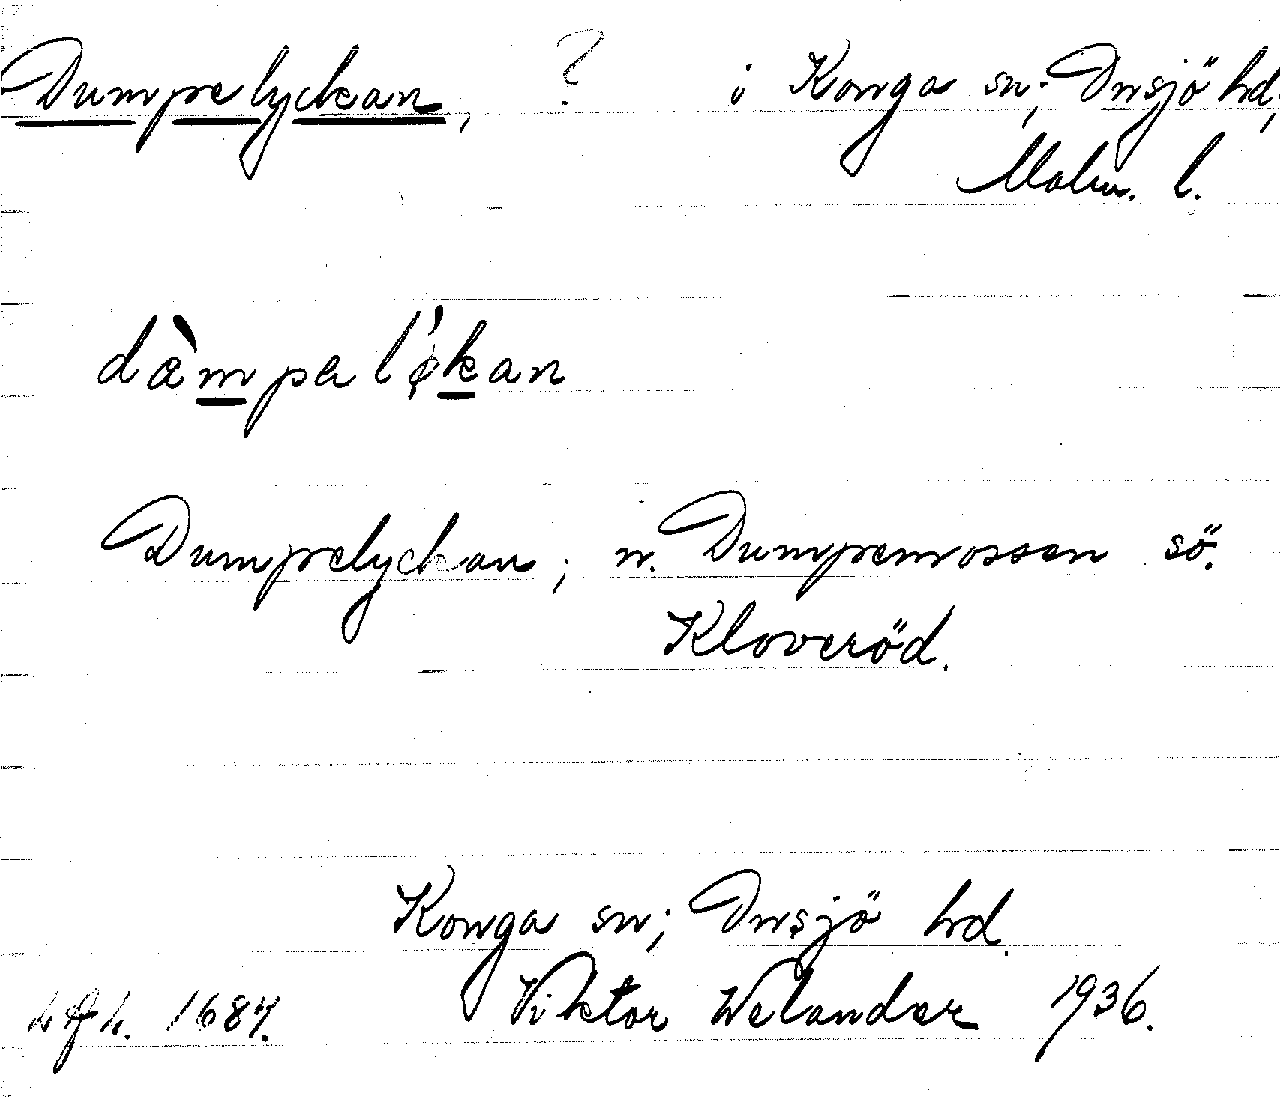 Dumpelyckan, ? i Konga sn; Onsjö hd,
Malm. l.
dàmpalø̍kan
Dumpelyckan; n. Dumpemossen sö.
Kloveröd.
Konga sn; Onsjö hd.
1687. Viktor Welander 1936.